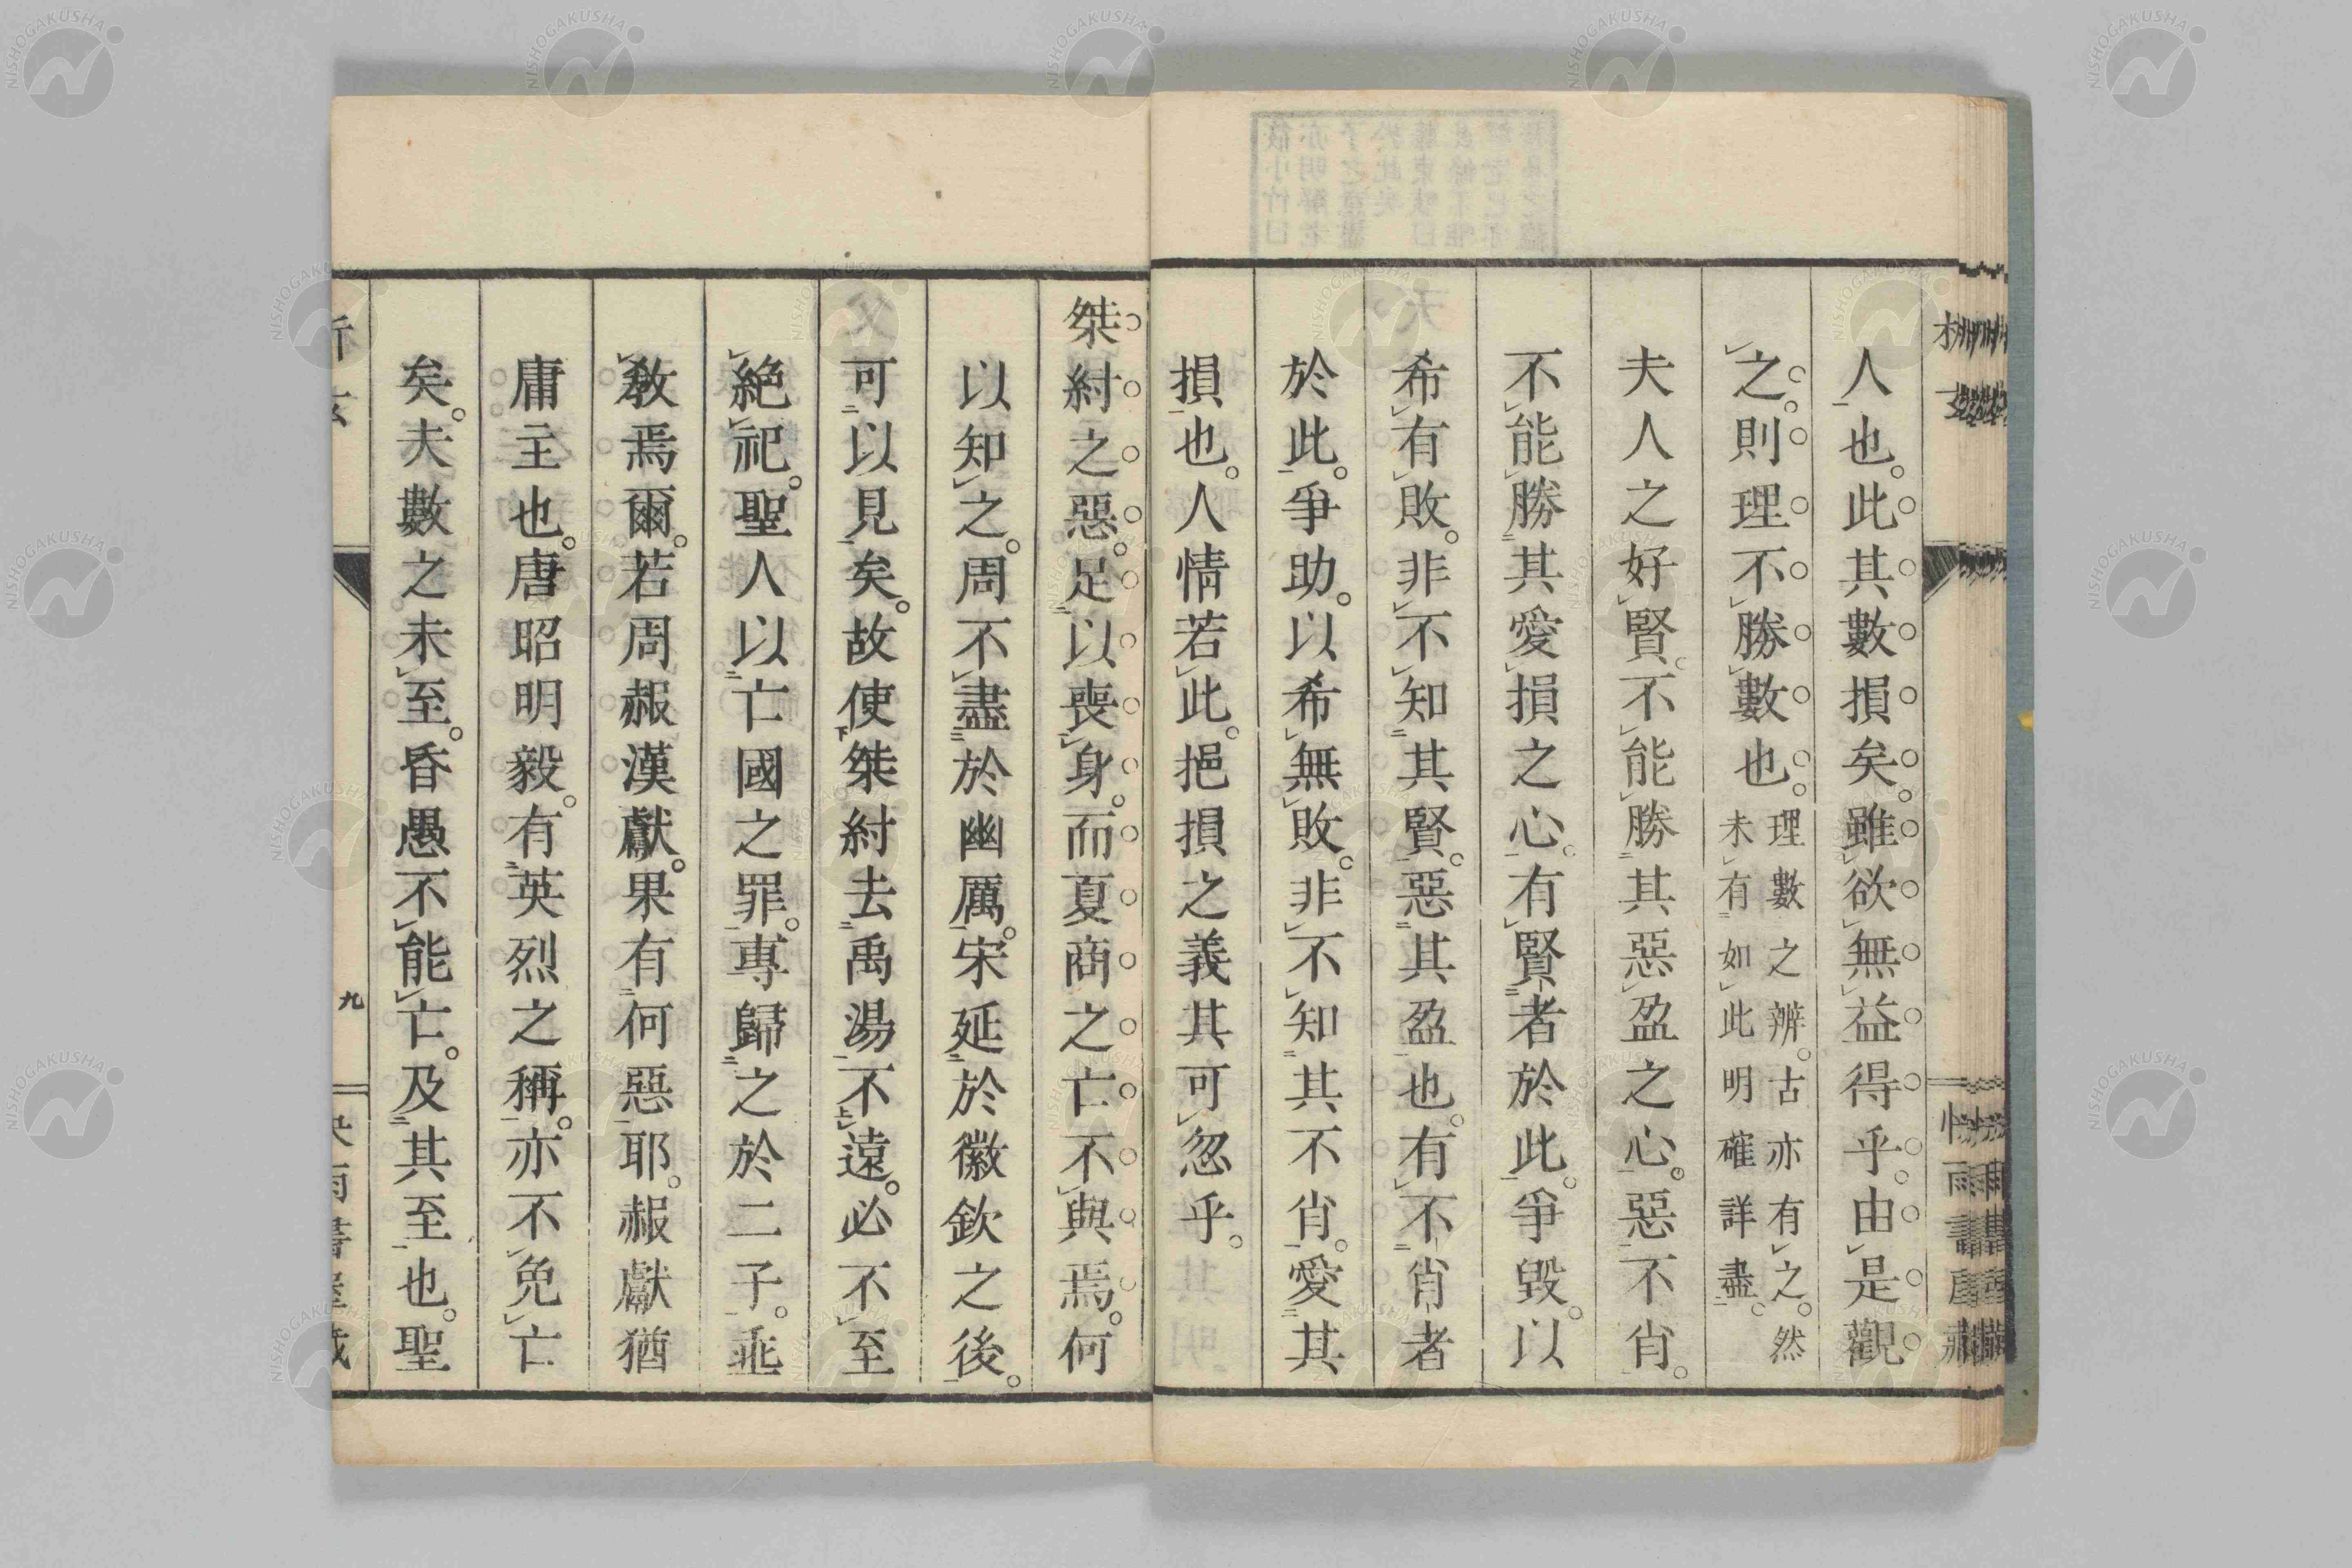 人也。此其數損矣。雖欲無益得乎。由是觀
之。則理不勝數也。理數之辨。古亦有之。然
未有如此明確詳盡。
夫人之好賢。不能勝其惡盈之心。惡不肖。
不能勝其愛損之心。有賢者於此。爭毀。以
希有敗。非不知其賢。惡其盈也。有不肖者
於此。爭助。以希無敗。非不知其不肖。愛其
損也。人情若此。挹損之義其可忽乎。
桀紂之惡。足以喪身。而夏商之亡不與焉。何
以知之。周不盡於幽厲。宋延於徽欽之後。
可以見矣。故使桀紂去禹湯不遠。必不至
絕祀。聖人以亡國之罪。專歸之於二子。乖
教焉爾。若周赧漢獻。果有何惡耶。赧獻猶
庸主也。唐昭明毅。有英烈之稱。亦不免亡
矣。夫數之未至。昏愚不能亡。及其至也。聖
九
NISHOGAKUSHA